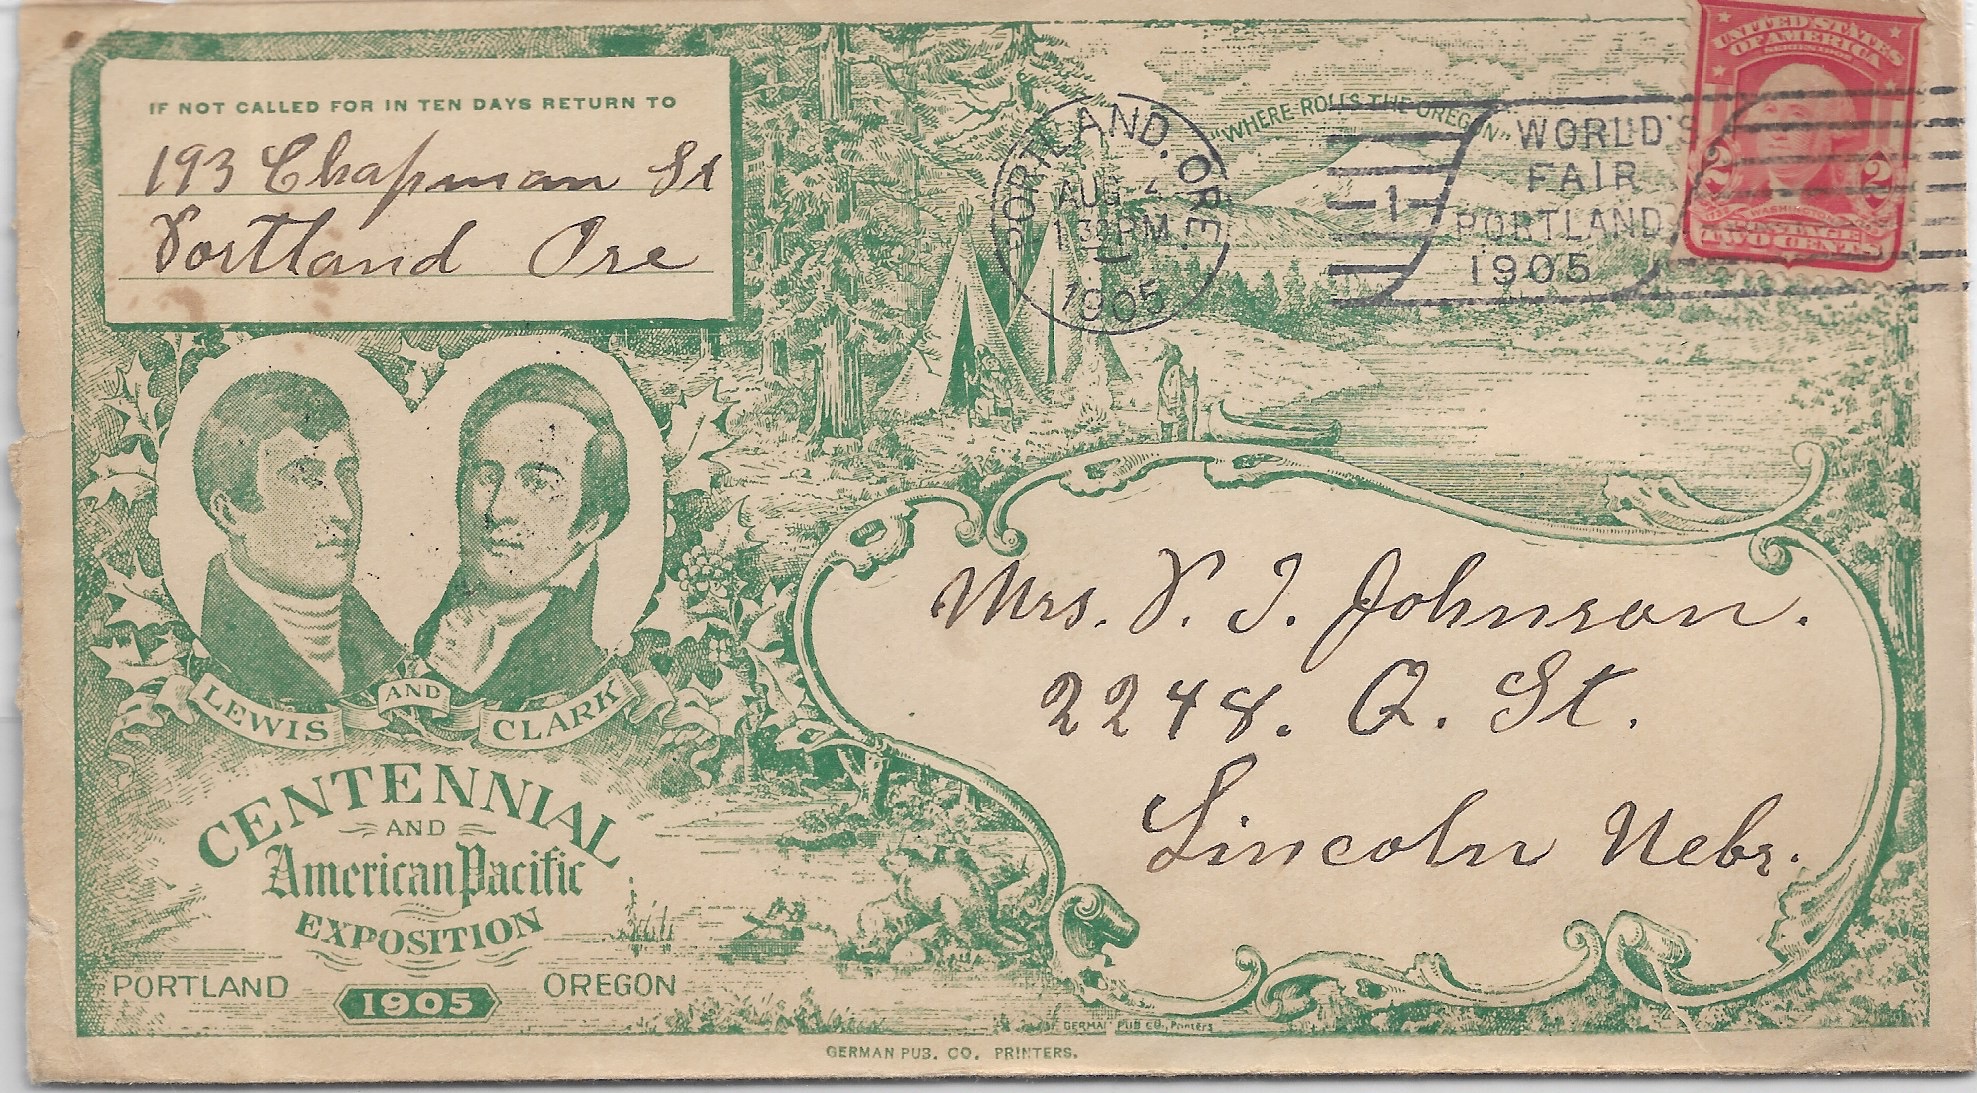 IF NOT CALLED FOR IN TEN DAYS RETURN TO
193 Chapman St
Portland Ore
"WHERE ROLLS THE OREGON"
PORTLAND, ORE.
AUG 2
1 30 PM
1905
1
WORLD'S
FAIR
PORTLAND
1905
UNITED STATES
OF AMERICA
SERIES 1902
2 2
WASHINGTON
POSTAGE
TWO CENTS
LEWIS AND CLARK
CENTENNIAL
AND
American Pacific
EXPOSITION
PORTLAND 1905 OREGON
Mrs. P. I. Johnson.
2248. Q. St.
Lincoln Nebr.
GERMAN PUB CO., Printers
GERMAN PUB. CO. PRINTERS.